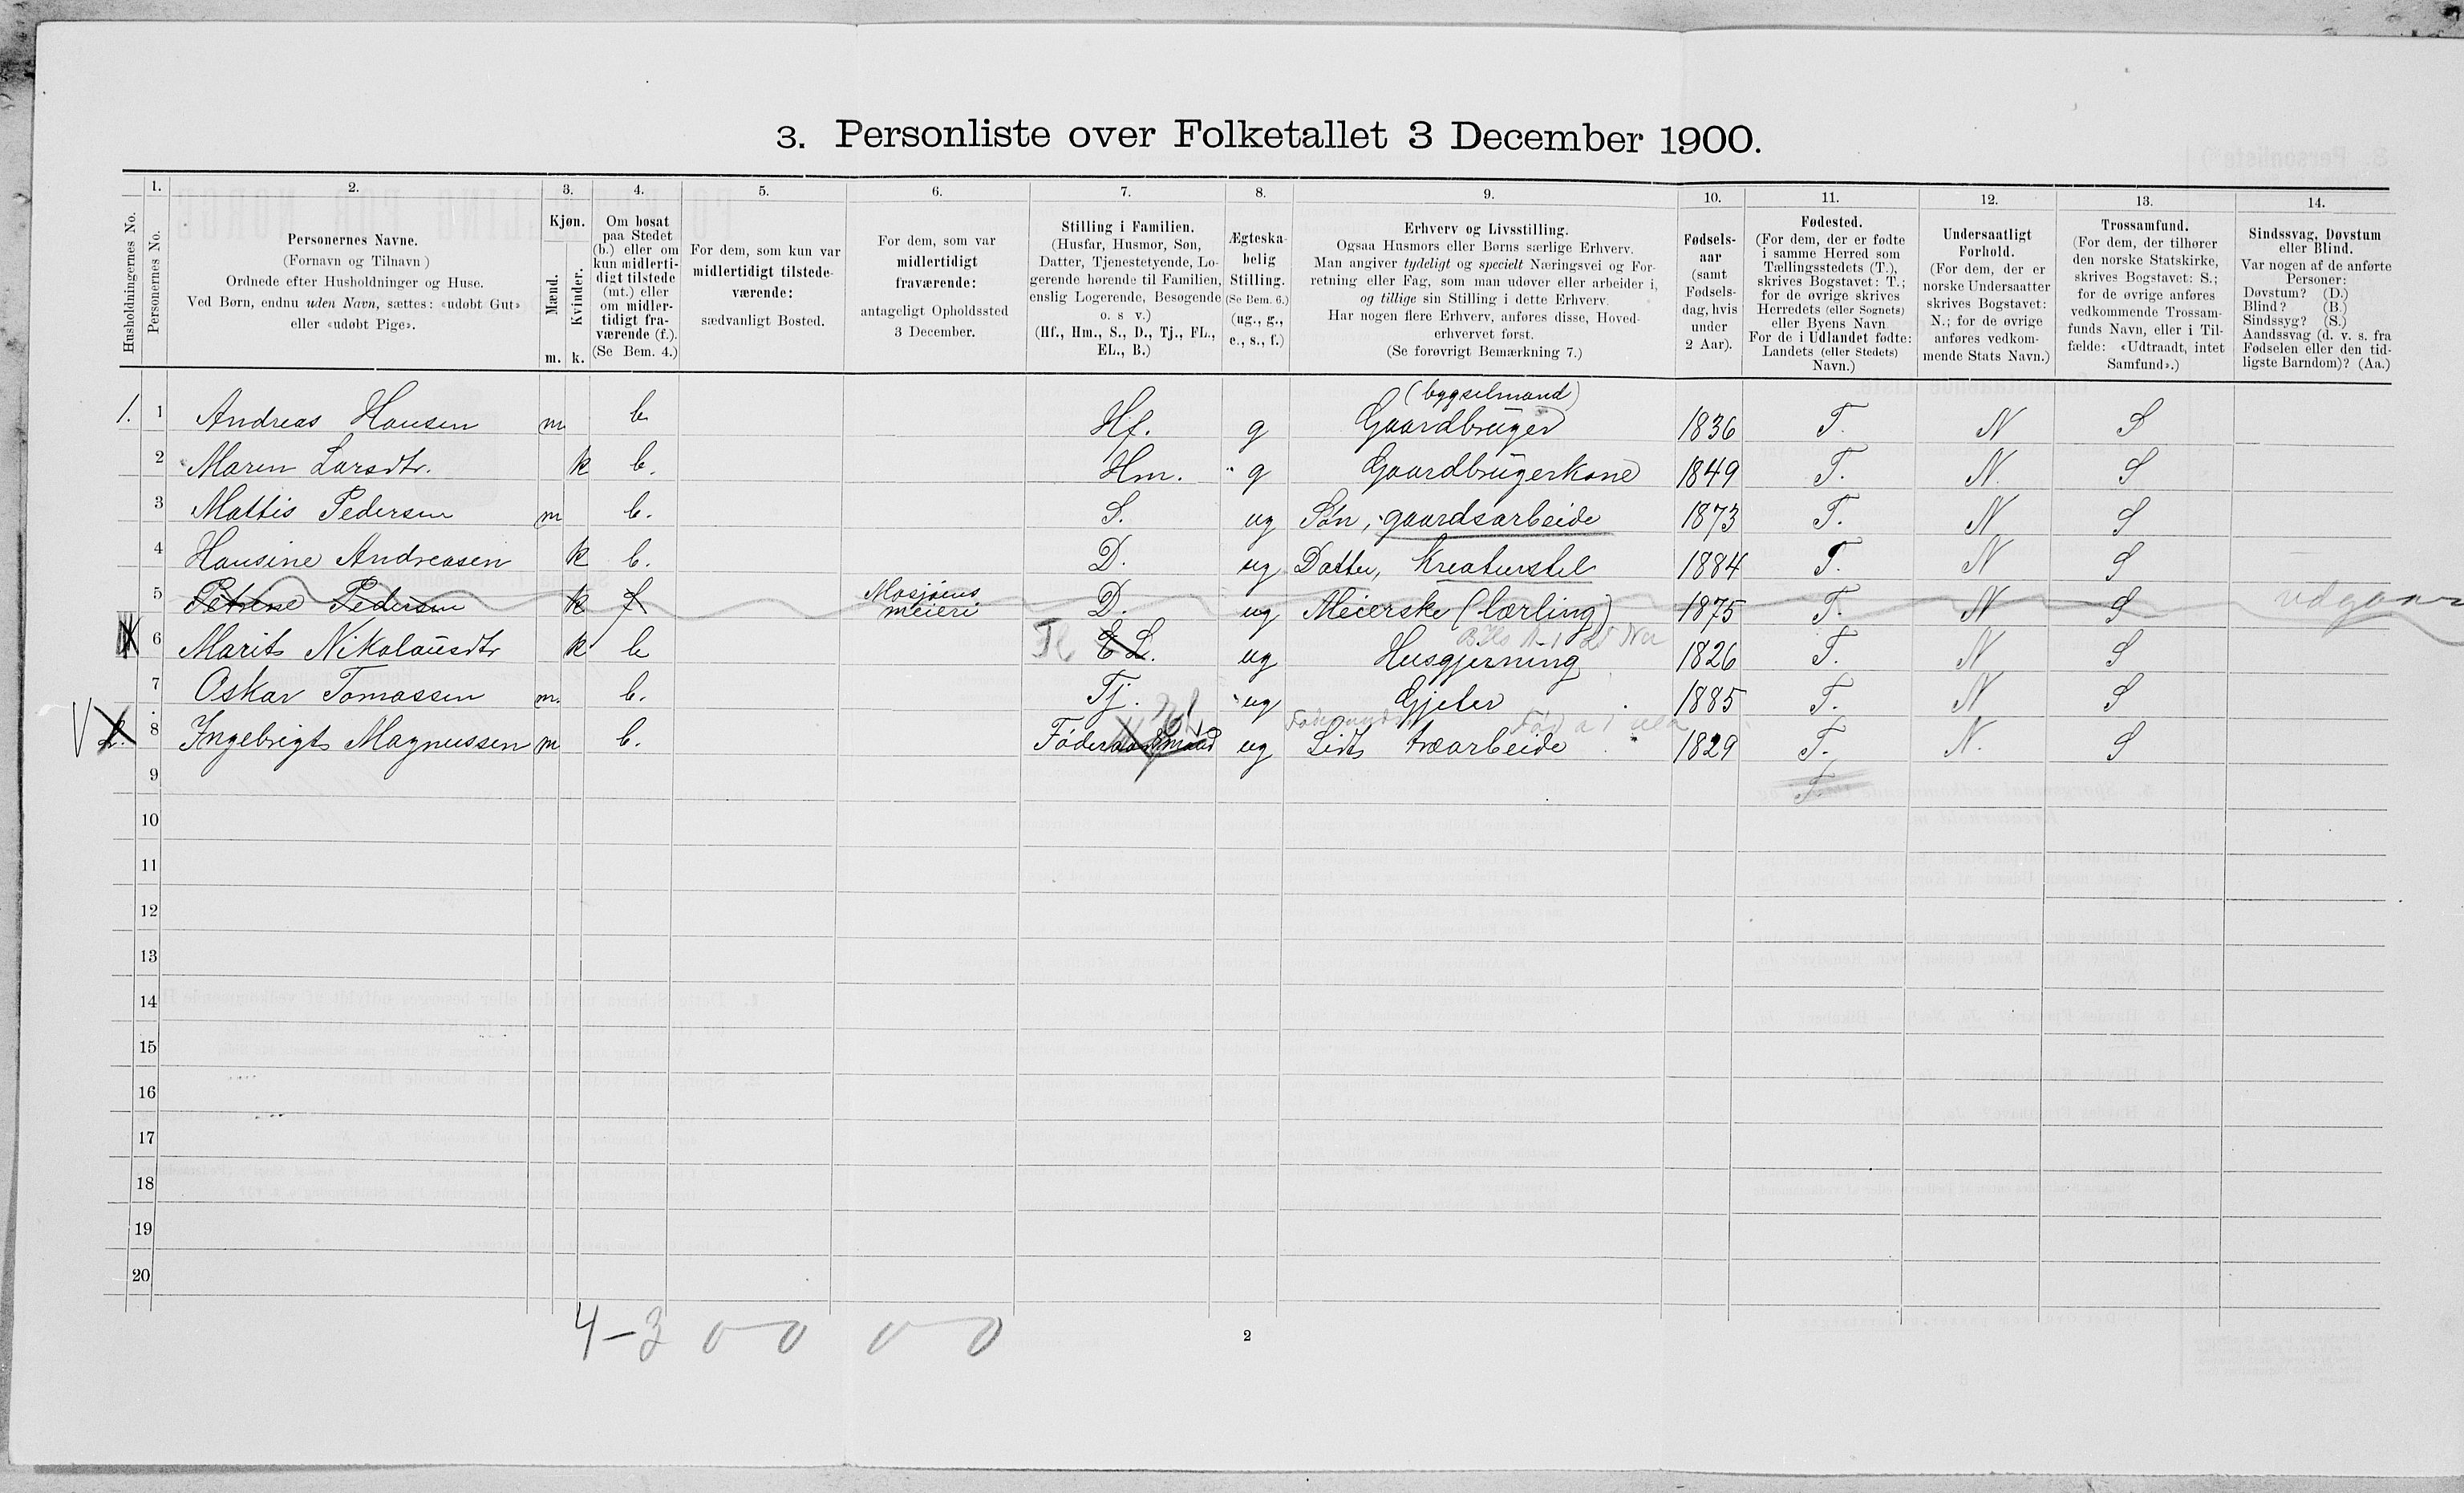 3. Personliste over Folketallet 3 December 1900.
Husholdningernes No.
1. Personernes No.
2. Personernes Navne.
(Fornavn og Tilnavn)
Ordnede efter Husholdninger og Huse.
Ved Børn, endnu uden Navn, sættes: «udøbt Gut»
eller «udøbt Pige».
3. Kjøn.
Mænd. Kvinder.
m. k.
4. Om bosat
paa Stedet
(b.) eller om
kun midlerti-
digt tilstede
(mt.) eller
om midler-
tidigt fra-
værende (f.).
(Se Bem. 4.)
5. For dem, som kun var
midlertidigt tilstede-
værende:
sædvanligt Bosted.
6. For dem, som var
midlertidigt
fraværende:
antageligt Opholdssted
3 December.
7. Stilling i Familien.
(Husfar, Husmor, Søn,
Datter, Tjenestetyende, Lo-
gerende hørende til Familien,
enslig Logerende, Besøgende
o. s v.)
(Hf., Hm., S., D., Tj., FL.,
EL., B.)
8. Ægteska-
belig
Stilling.
(Se Bem. 6.)
(ug., g.,
e., s., f.)
9. Erhverv og Livsstilling.
Ogsaa Husmors eller Børns særlige Erhverv.
Man angiver tydeligt og specielt Næringsvei og For-
retning eller Fag, som man udøver eller arbeider i,
og tillige sin Stilling i dette Erhverv.
Har nogen flere Erhverv, anføres disse, Hoved-
erhvervet først.
(Se forøvrigt Bemærkning 7.)
10. Fødsels-
aar
(samt
Fødsels-
dag, hvis
under
2 Aar).
11. Fødested.
(For dem, der er fødte
i samme Herred som
Tællingsstedets (T.),
skrives Bogstavet: T.;
for de øvrige skrives
Herredets (eller Sognets)
eller Byens Navn
For de i Udlandet fødte:
Landets (eller Stedets)
Navn.)
12. Undersaatligt
Forhold.
(For dem, der er
norske Undersaatter
skrives Bogstavet:
N.; for de øvrige
anføres vedkom-
mende Stats Navn.)
13. Trossamfund.
(For dem, der tilhører
den norske Statskirke,
skrives Bogstavet: S.;
for de øvrige anføres
vedkommende Trossam-
funds Navn, eller i Til-
fælde: «Udtraadt, intet
Samfund».)
14. Sindssvag, Døvstum
eller Blind.
Var nogen af de anførte
Personer:
Døvstum? (D.)
Blind? (B.)
Sindssyg? (S.)
Aandssvag (d. v. s. fra
Fødselen eller den tid-
ligste Barndom)? (Aa.)
(bygselmand)
1. 1 Andreas Hansen m b Hf. g Gaardbruger 1836 T. N S
2 Maren Larsdtr. k b. Hm. g Gaardbrugerkone 1849 T. N. S
3 Mattis Pedersen m b. S. ug Søn, gaardsarbeide 1873 T. N S
4 Hansine Andreasen k b. D. ug Datter, Kreaturstel 1884 T. N S
5 Petrine Pedersen k f Mosjøens meieri D. ug Meierske (lærling) 1875 T. N S udgaar
6 Marit Nikolausdtr k b E L. ug Husgjerning 1826 T. N S
7 Oskar Tomassen m. b. Tj. ug Gjeter 1885 T. N S
2. 8 Ingebrigt Magnussen m b. Føderaadsmand ug Lidt træarbeide 1829 T. N. S
9 T.
10
11
12
13
14
15
16
17
18
19
20
4-3 0 0 0 0
2